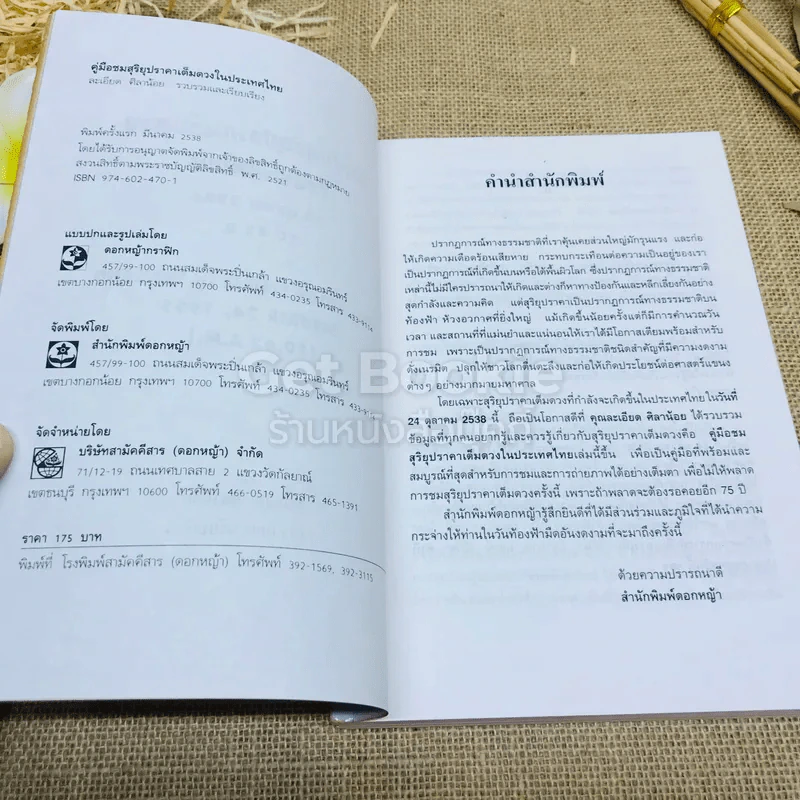 คู่มือชมสุริยุปราคาเต็มดวงในประเทศไทย
ละเอียด ศิลาน้อย รวบรวมและเรียบเรียง
พิมพ์ครั้งแรก มีนาคม 2538
โดยได้รับการอนุญาตจัดพิมพ์จากเจ้าของลิขสิทธิ์ถูกต้องตามกฎหมาย
สงวนสิทธิ์ตามพระราชบัญญัติลิขสิทธิ์ พ.ศ. 2521
ISBN 974-602-470-1
แบบปกและรูปเล่มโดย
ดอกหญ้ากราฟิก
457/99-100 ถนนสมเด็จพระปิ่นเกล้า แขวงอรุณอมรินทร์
เขตบางกอกน้อย กรุงเทพฯ 10700 โทรศัพท์ 434-0235 โทรสาร 433-9114
จัดพิมพ์โดย
สำนักพิมพ์ดอกหญ้า
457/99-100 ถนนสมเด็จพระปิ่นเกล้า แขวงอรุณอมรินทร์
เขตบางกอกน้อย กรุงเทพฯ 10700 โทรศัพท์ 434-0235 โทรสาร
จัดจำหน่ายโดย
บริษัทสามัคคีสาร (ดอกหญ้า) จำกัด
71/12-19 ถนนเทศบาลสาย 2 แขวงวัดกัลยาณ์
เขตธนบุรี กรุงเทพฯ 10600 โทรศัพท์ 466-0519 โทรสาร 465-1391
ราคา 175 บาท
พิมพ์ที่ โรงพิมพ์สามัคคีสาร (ดอกหญ้า) โทรศัพท์ 392-1569, 392-3115
คำนำสำนักพิมพ์
ปรากฏการณ์ทางธรรมชาติที่เราคุ้นเคยส่วนใหญ่มักรุนแรง และก่อ
ให้เกิดความเดือดร้อนเสียหาย กระทบกระเทือนต่อความเป็นอยู่ของเรา
เป็นปรากฏการณ์ที่เกิดขึ้นบนหรือใต้พื้นผิวโลก ซึ่งปรากฏการณ์ทางธรรมชาติ
เหล่านี้ไม่มีใครปรารถนาให้เกิดและต่างก็หาทางป้องกันและหลีกเลี่ยงกันอย่าง
สุดกำลังและความคิด แต่สุริยุปราคาเป็นปรากฏการณ์ทางธรรมชาติบน
ท้องฟ้า ห้วงอวกาศที่ยิ่งใหญ่ แม้เกิดขึ้นน้อยครั้งแต่ก็มีการคำนวณวัน
เวลา และสถานที่ที่แม่นยำและแน่นอนให้เราได้มีโอกาสเตรียมพร้อมสำหรับ
การชม เพราะเป็นปรากฏการณ์ทางธรรมชาติชนิดสำคัญที่มีความงดงาม
ดังเนรมิต ปลุกให้ชาวโลกตื่นตะลึงและก่อให้เกิดประโยชน์ต่อศาสตร์แขนง
ต่างๆ อย่างมากมายมหาศาล
โดยเฉพาะสุริยุปราคาเต็มดวงที่กำลังจะเกิดขึ้นในประเทศไทยในวันที่
24 ตุลาคม 2538 นี้ ถือเป็นโอกาสดีที่ คุณละเอียด ศิลาน้อย ได้รวบรวม
ข้อมูลที่ทุกคนอยากรู้และควรรู้เกี่ยวกับสุริยุปราคาเต็มดวงคือ คู่มือชม
สุริยุปราคาเต็มดวงในประเทศไทยเล่มนี้ขึ้น เพื่อเป็นคู่มือที่พร้อมและ
สมบูรณ์ที่สุดสำหรับการชมและการถ่ายภาพได้อย่างเต็มตา เพื่อไม่ให้พลาด
การชมสุริยุปราคาเต็มดวงครั้งนี้ เพราะถ้าพลาดจะต้องรอคอยอีก 75 ปี
สำนักพิมพ์ดอกหญ้ารู้สึกยินดีที่ได้มีส่วนร่วมและภูมิใจที่ได้นำความ
กระจ่างให้ท่านในวันท้องฟ้ามืดอันงดงามที่จะมาถึงครั้งนี้
ด้วยความปรารถนาดี
สำนักพิมพ์ดอกหญ้า